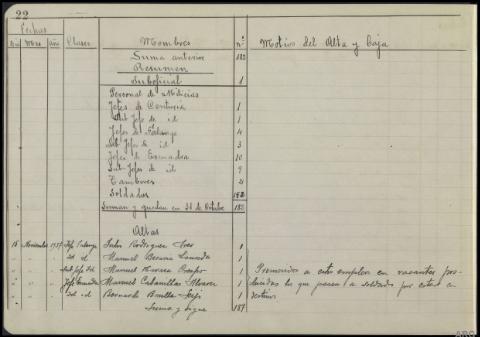 22
Fechas
Dia Mes Año Clases Nombres nº Motivo del Alta y Baja
Suma anterior 182
Resumen
Suboficial 1
Personal de Milicias
Jefes de Centuria 1
Sub Jefes de id 1
Jefes de Falange 4
Sub Jefes de id 3
Jefes de Escuadra 10
Sub Jefes de id 9
Tambores 2
Soldados
Suman y quedan en 31 de Octubre 182
Altas
16 Noviembre 1937 Jefe Falange Rodriguez 1
" " " id Manuel 1
" " " Sub Jefe id Manuel Crespo 1
" " " Jefe Escuadra Manuel Cabanillas Alvarez 1
" " " Sub id Bernardo 1
Suma y sigue 187
Promovidos a este empleo en vacantes producidas
los que pasan a soldados por estar en
destinos